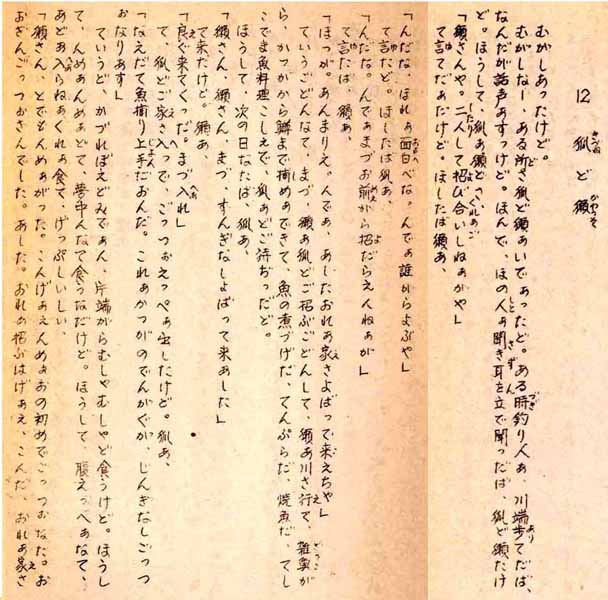 12 狐ど獺
むがしあったけど。
むがしなー ある所さ狐ど獺あいであったど。ある時釣り人あ、川端歩てだば、
なんだが話声あすっけど。ほんで、ほの人あ聞き耳を立で聞ったば、狐ど獺だけ
ど。ほうして、狐あ獺どさ、
「獺さんや。二人して招び合いしねぁがや」
て言ってだぁだけど。ほしたば獺あ、
「んだな、ほれぁ面白べな。んでぁ誰からよぶや」
て言たど。ほしたば狐あ、
「んだな。んでぁまづお前から招だらえんねぁが」
て言たば、獺あ、
「ほっが。あんまりえ。んでぁ、あしたおれぁ家さよばって来えちゃ」
ていうごどんなて、まづ、獺あ狐どご招ぶごどんして、獺あ川さ行て、雑魚が
ら、かっかから鱒まで捕めぁできて、魚の煮づげだ、てんぷらだ、焼魚だ、てし
こでま魚料理こしえで、狐ぁどご待ぢったど。
ほうして、次の日なたば、狐あ、
「獺さん、獺さん、まづ、すんぎなしよばって来あした」
て来たけど。獺あ、
「良ぐ来てくった。まづ入れ」
て、狐どご家さ入って、ごっつぉえっぺぁ出したけど。狐あ、
「なえだて魚捕り上手だおんだ。これぁかつがのでんがぐが、じんぎなしごっつ
おなりあす」
ていうど、かづれぼえどみでぁん、片端がらむしゃむしゃど食うけど。ほうし
て、んめぁんめぁどて、夢中んなて食うなだけど。ほうして、腹えっぺぁなて、
あどぁ入らねぁぐれぁ食て、げっぷしいしい、
「獺さん、とでもんめぁがった。こんげぁえんめぁおの初めでごっつぉなた。お
おぎんごっつぉさんでした。あした。おれぁ招ぶはげぁえ、こんだ、おれぁ家さ